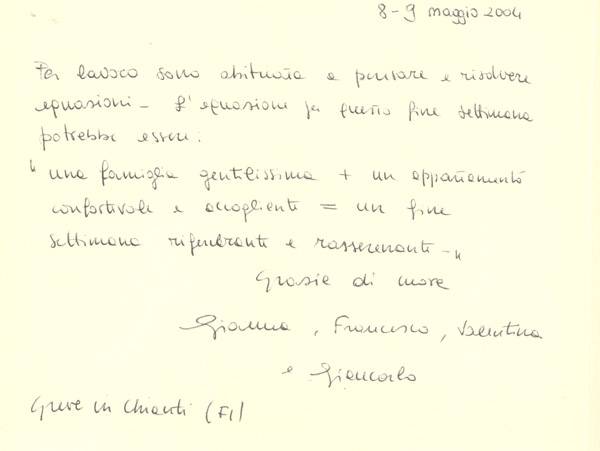 8-9 maggio 2004
Per lavoro sono abituata a pensare e risolvere
equazioni - L'equazione per questo fine settimana
potrebbe essere:
" una famiglia gentilissima + un appartamento
confortevole e accogliente = un fine
settimana rigenerante e rasserenante - "
Grazie di cuore
Gianna, Francesco, Valentina
e Giancarlo
Greve in Chianti (FI)